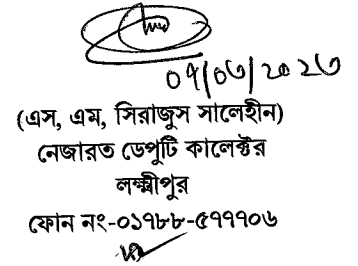 ০৭/০৩/২০২৩
(এস, এম, সিরাজুস সালেহীন)
নেজারত ডেপুটি কালেক্টর
লক্ষ্মীপুর
ফোন নং-০১৭৮৮-৫৭৭৭০৬